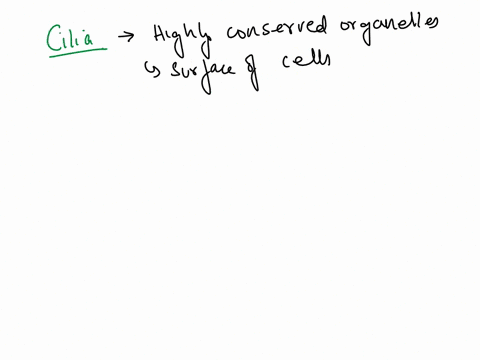 Cilia → Highly conserved organelles
↳ surface of cells